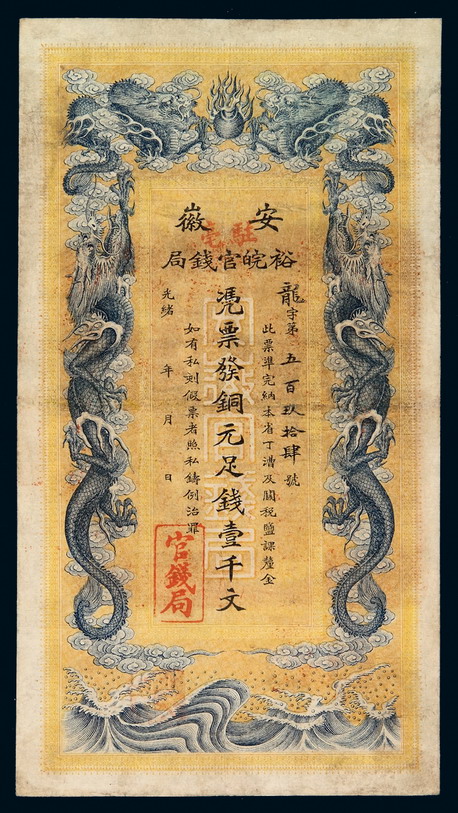 安徽
駐亳
裕皖官錢局
龍字第五百玖拾肆號
此票準完納本省丁漕及關稅鹽課釐金
憑票發銅元足錢壹千文
如有私刻假票者照私鑄例治罪
光緒 年 月 日
官錢局